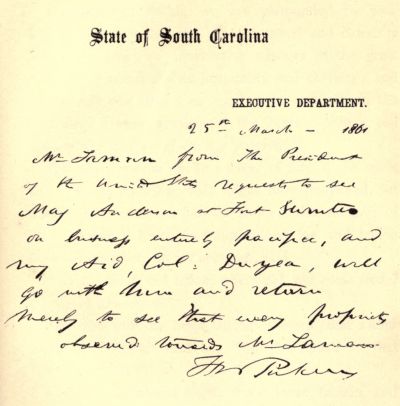 State of South Carolina
EXECUTIVE DEPARTMENT.
25th March – 1861
Mr Lamon from The President
of the United States requests to see
Maj Anderson at Fort Sumter
on business entirely pacific, and
my Aid, Col: Duryea, will
go with him and return
merely to see that every propriety
observed towards Mr Lamon
F W Pickens